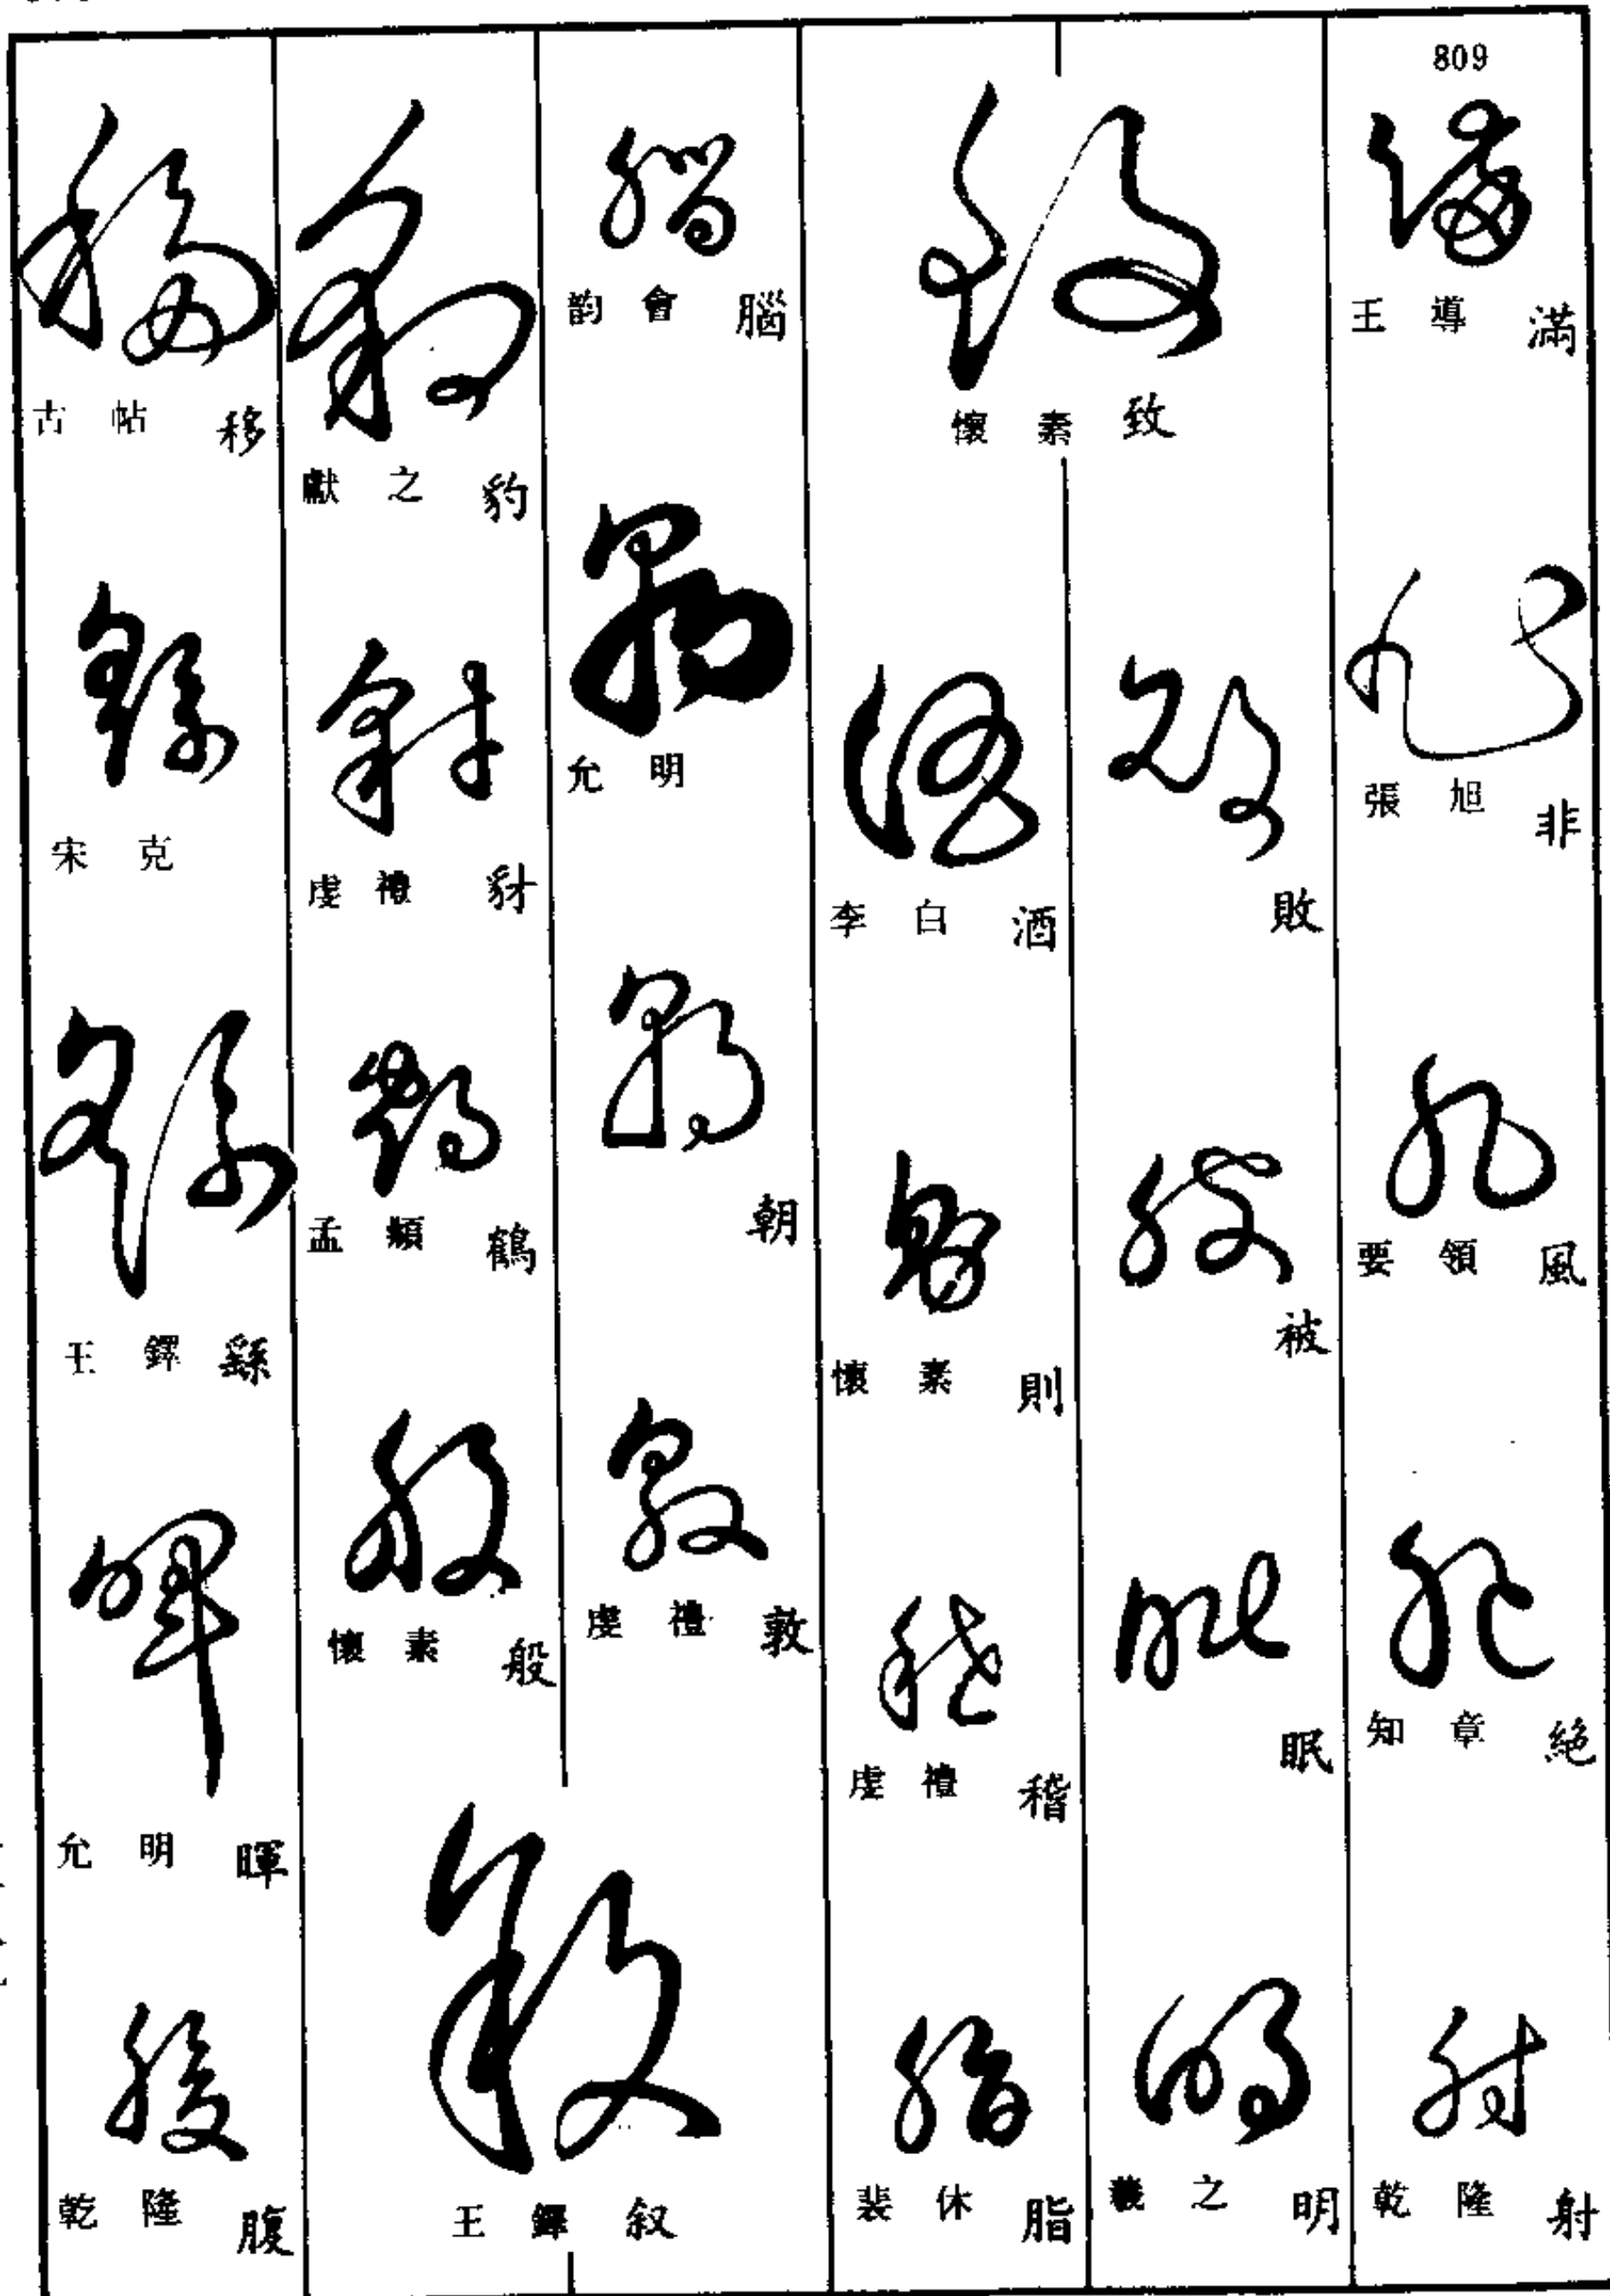 809
王 導 滿
張 旭 非
要 領 風
知 章 絕
乾 隆 射
懷 素 致
敗
被
眠
羲 之 明
李 白 酒
懷 素 則
虔 禮 稽
裴 休 脂
韵 會 腦
允 明
朝
虔 禮 敦
王 鐸 叙
獻 之 豹
虔 禮 豺
孟 頫 鶴
懷 素 般
古 帖 移
宋 克
王 鐸 繇
允 明 暉
乾 隆 腹